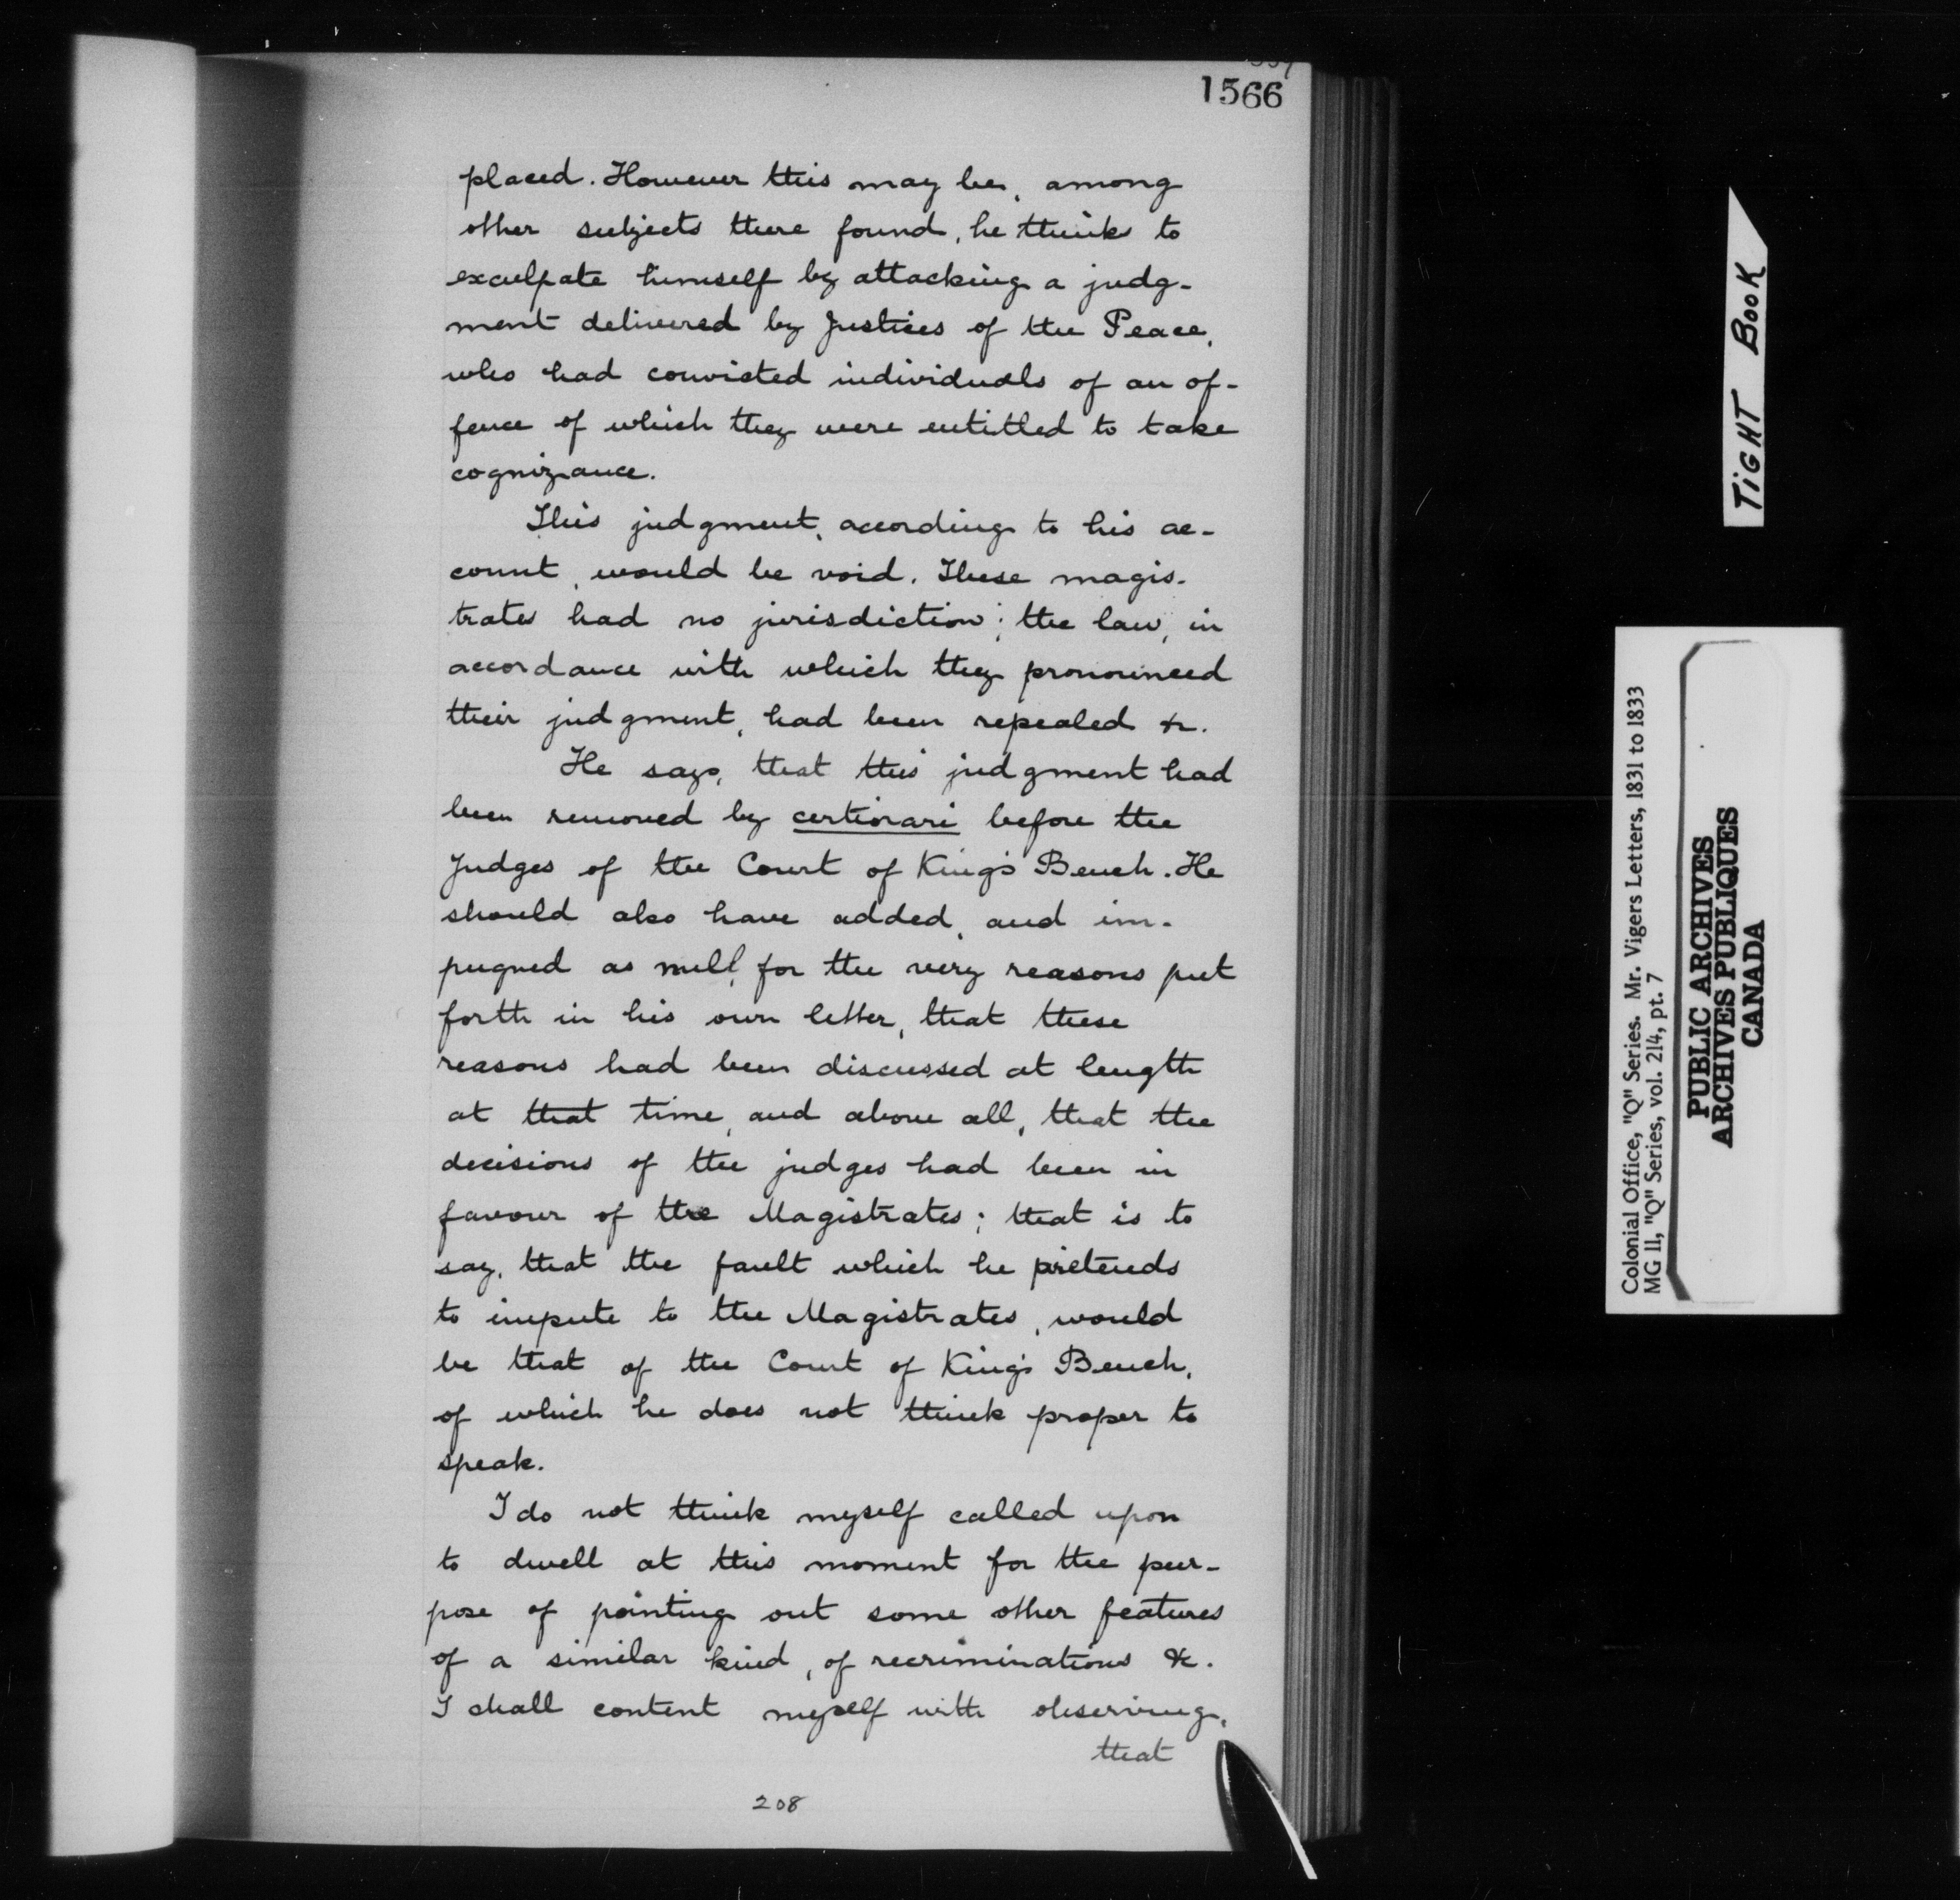 1566
placed. However this may be, among
other subjects there found, he thinks to
exculpate himself by attacking a judg-
ment delivered by Justices of the Peace,
who had convicted individuals of an of-
fence of which they were entitled to take
cognizance.
This judgment, according to his ac-
count, would be void. These magis-
trates had no jurisdiction; the law, in
accordance with which they pronounced
their judgment, had been repealed &c.
He says, that this judgment had
been removed by certiorari before the
Judges of the Court of King's Bench. He
should also have added, and im-
pugned as null, for the very reasons put
forth in his own letter, that these
reasons had been discussed at length
at that time, and above all, that the
decisions of the judges had been in
favour of the Magistrates; that is to
say, that the fault which he pretends
to impute to the Magistrates, would
be that of the Court of King's Bench,
of which he does not think proper to
speak.
I do not think myself called upon
to dwell at this moment for the pur-
pose of pointing out some other features
of a similar kind, of recriminations &c.
I shall content myself with observing,
that
208
TIGHT BOOK
Colonial Office, "Q" Series. Mr. Vigers Letters, 1831 to 1833
MG 11, "Q" Series, vol. 214, pt. 7
PUBLIC ARCHIVES
ARCHIVES PUBLIQUES
CANADA